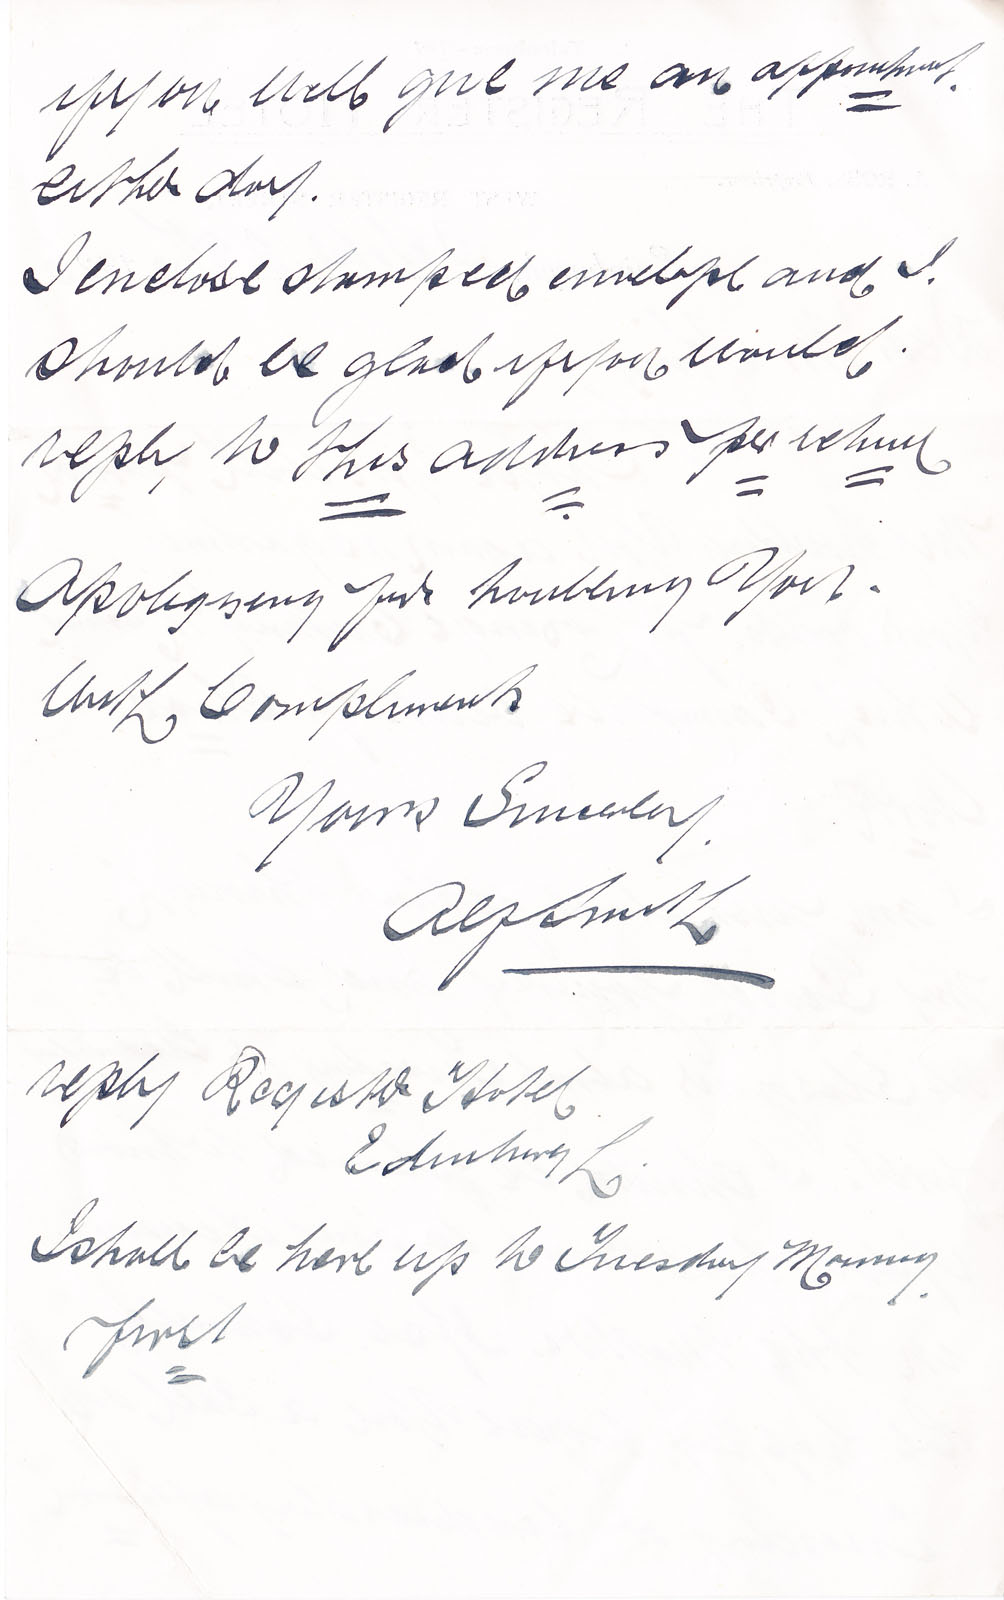 if you will give me an appointment.
either day.
I enclose stamped envelope and I.
should be glad if you would.
reply, to this address per return
Apologising for troubling You.
With Compliments
Yours Sincerely.
Alf Smith
reply Register Hotel
Edinburgh.
I shall be here up to Tuesday Morning.
first